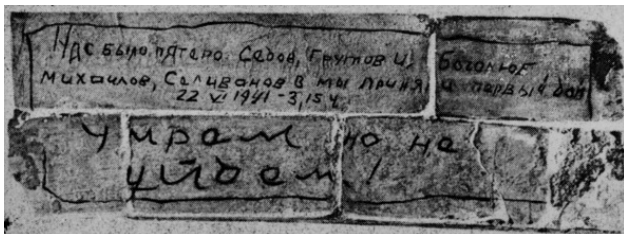 Нас было пятеро Седов, Грутов И, Боголюб,
Михаилов, Селиванов В мы приняли первый бой
22 VI 1941 - 3,15 ч.
Умрем но не
уйдем!